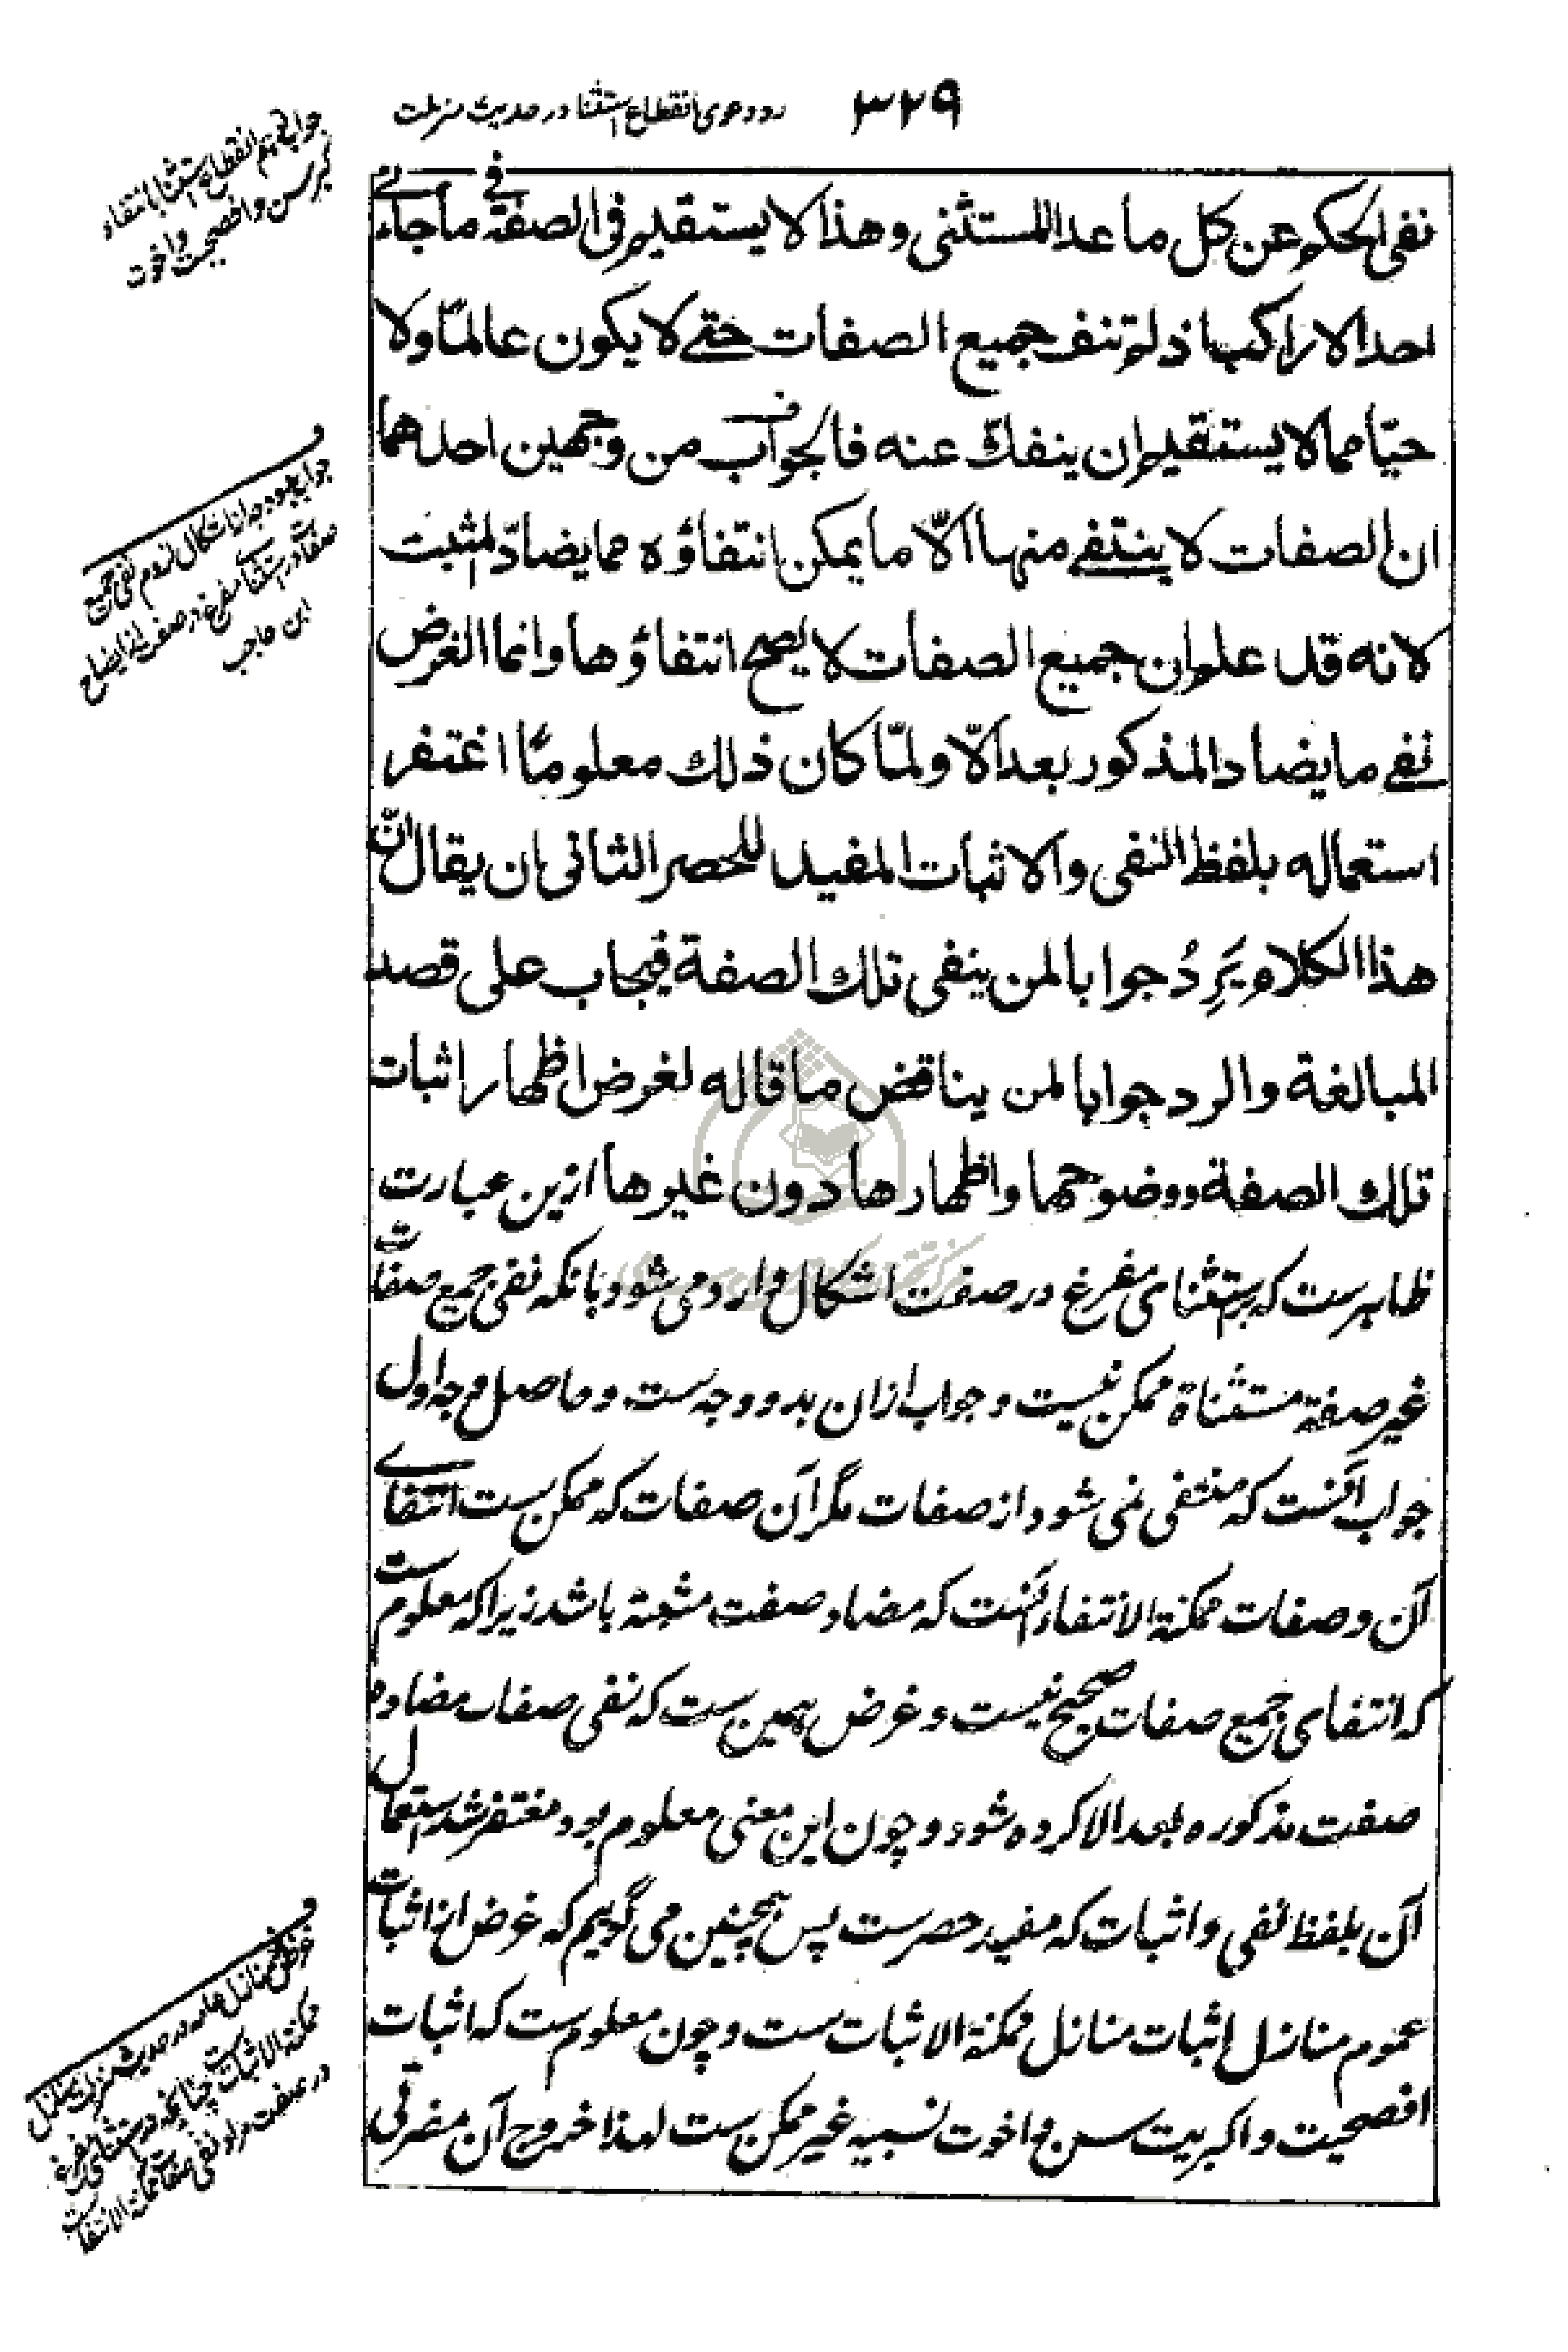 ۳۲۹
رد دعوی انقطاع استثنا در حدیث منزلت
نفی الحکم عن کل ما عدا المستثنی وهذا لا یستقیم فی الصفة فی ما جاءنی
احد الا راکب اذ لم تنف جمیع الصفات حتی لا یکون عالمًا ولا
حیّا مما لا یستقیم ان ینفک عنه فالجواب من وجهین احدهما
ان الصفات لا ینتفی منها الّا ما یمکن انتفاؤه مما یضادّ المثبت
لانه قد علم ان جمیع الصفات لا یصح انتفاؤها وانما الغرض
نفی ما یضاد المذکور بعد الّا ولمّا کان ذلك معلومًا اغتفر
استعماله بلفظ النفی والاثبات المفید للحصر الثانی ان یقال انّ
هذا الکلام یَرِدُ جوابا لمن ینفی تلك الصفة فیجاب علی قصد
المبالغة والرد جوابا لمن یناقض ما قاله لغرض اظهار اثبات
تلك الصفة ووضوحها واظهارها دون غیرها ازین عبارت
ظاهرست که بر استثنای مفرغ در صفت اشکال وارد می شود بانکه نفی جمیع صفات
غیر صفة مستثناة ممکن نیست و جواب ازان بدو وجه ست و حاصل وجه اول
جواب آنست که منتفی نمی شود از صفات مگر آن صفات که ممکن ست انتفای
آن و صفات ممکنة الانتفاء آنست که مضاد صفت مثبتة باشد زیرا که معلوم ست
که انتفای جمیع صفات صحیح نیست و غرض همین ست که نفی صفات مضاده
صفت مذکوره بعد الا کرده شود و چون این معنی معلوم بود مغتفر شد استعمال
آن بلفظ نفی و اثبات که مفید حصرست پس همچنین می گوییم که غرض از اثبات
عموم منازل اثبات منازل ممکنة الاثبات ست و چون معلوم ست که اثبات
افصحیت و اکبریت سن و اخوت نسبیه غیر ممکن ست لهذا خروج آن مضرتی
جواب توهم انقطاع استثنا بانتفاء
کبر سن و افصحیت و اخوت
جواب بدو وجه از اشکال لزوم نفی جمیع
صفات در استثنای مفرغ در صفت از ایضاح
ابن حاجب
غرض منازل عامه در حدیث منزلت منازل
ممکنة الاثبات ست چنانچه در استثنای مفرغ
در صفت مراد نفی صفات ممکنة الانتفاست